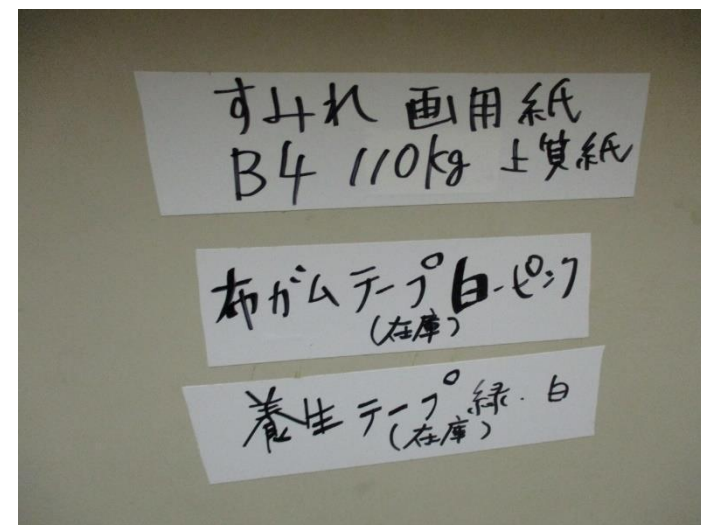 すみれ 画用紙
B4 110kg 上質紙
布ガムテープ白・ピンク
(在庫)
養生テープ緑・白
(在庫)